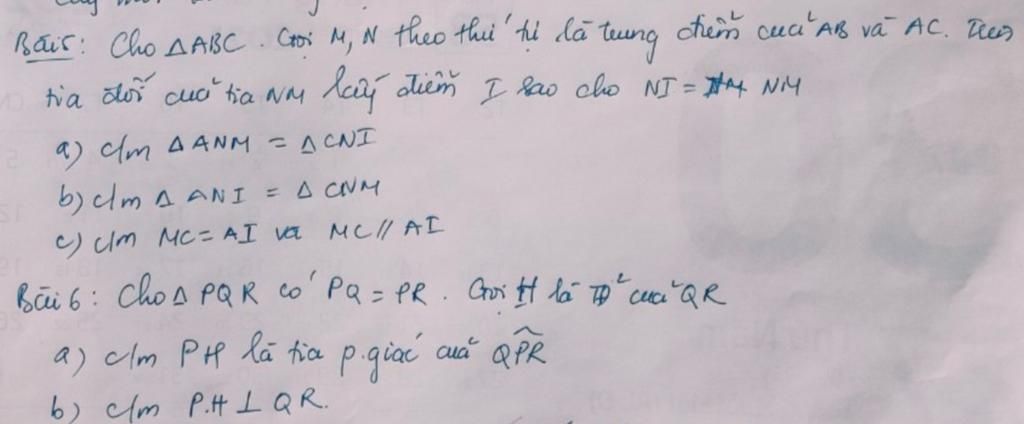 Bài 5: Cho ΔABC. Gọi M, N theo thứ tự là trung điểm của AB và AC. Trên
tia đối của tia NM lấy điểm I sao cho NI = NM
a) c/m Δ ANM = Δ CNI
b) c/m Δ ANI = Δ CNM
c) c/m MC = AI và MC // AI
Bài 6: Cho Δ PQR có PQ = PR. Gọi H là TĐ của QR
a) c/m PH là tia p.giác của QPR
b) c/m P.H ⊥ QR.